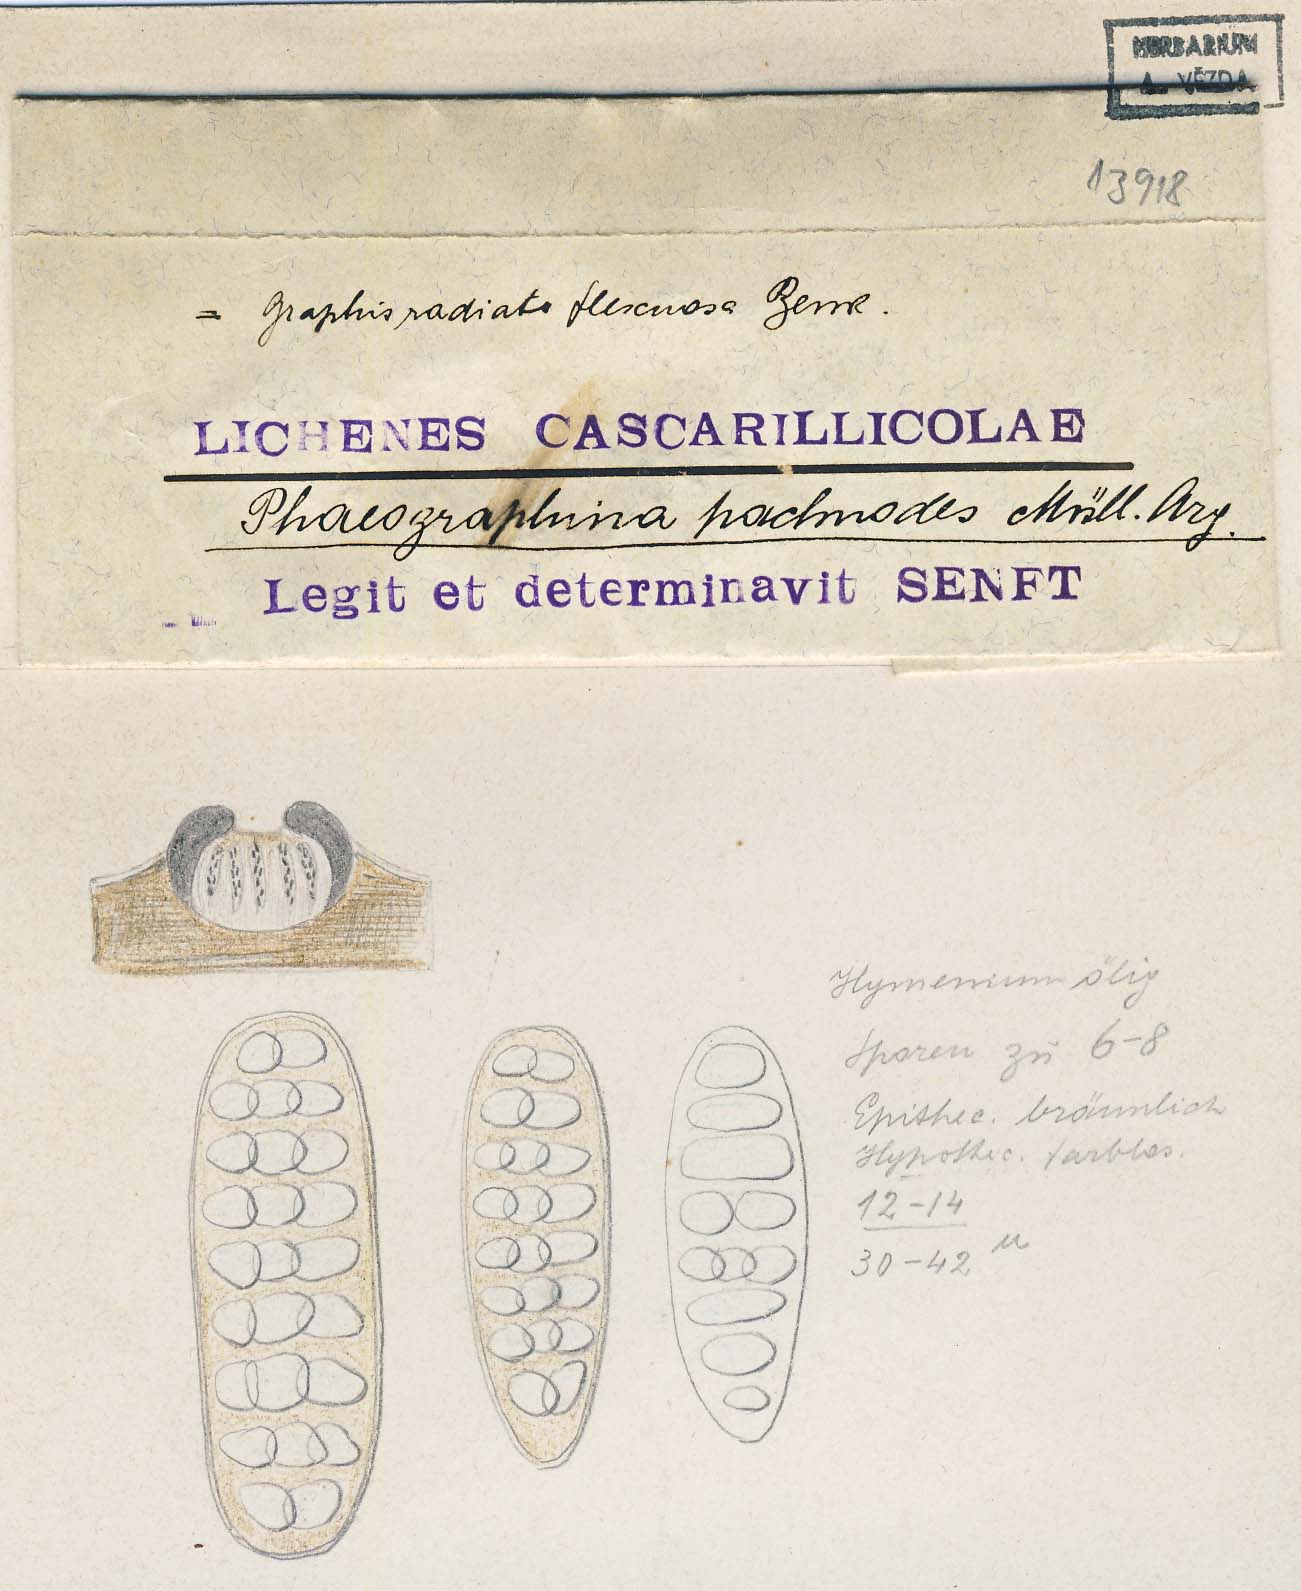 HERBARIUM
A. VĚZDA
13918
= Graphis radiata flexuosa Zenk.
LICHENES CASCARILLICOLAE
Phaeographina pachnodes Müll. Arg.
Legit et determinavit SENFT
Hymenium ölig
Sporen zu 6-8
Epithec. bräunlich
Hypothec. farblos.
12-14
30-42 μ